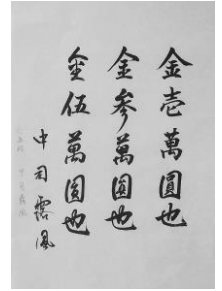 金壱萬圓也
金参萬圓也
金伍萬圓也
中司露風